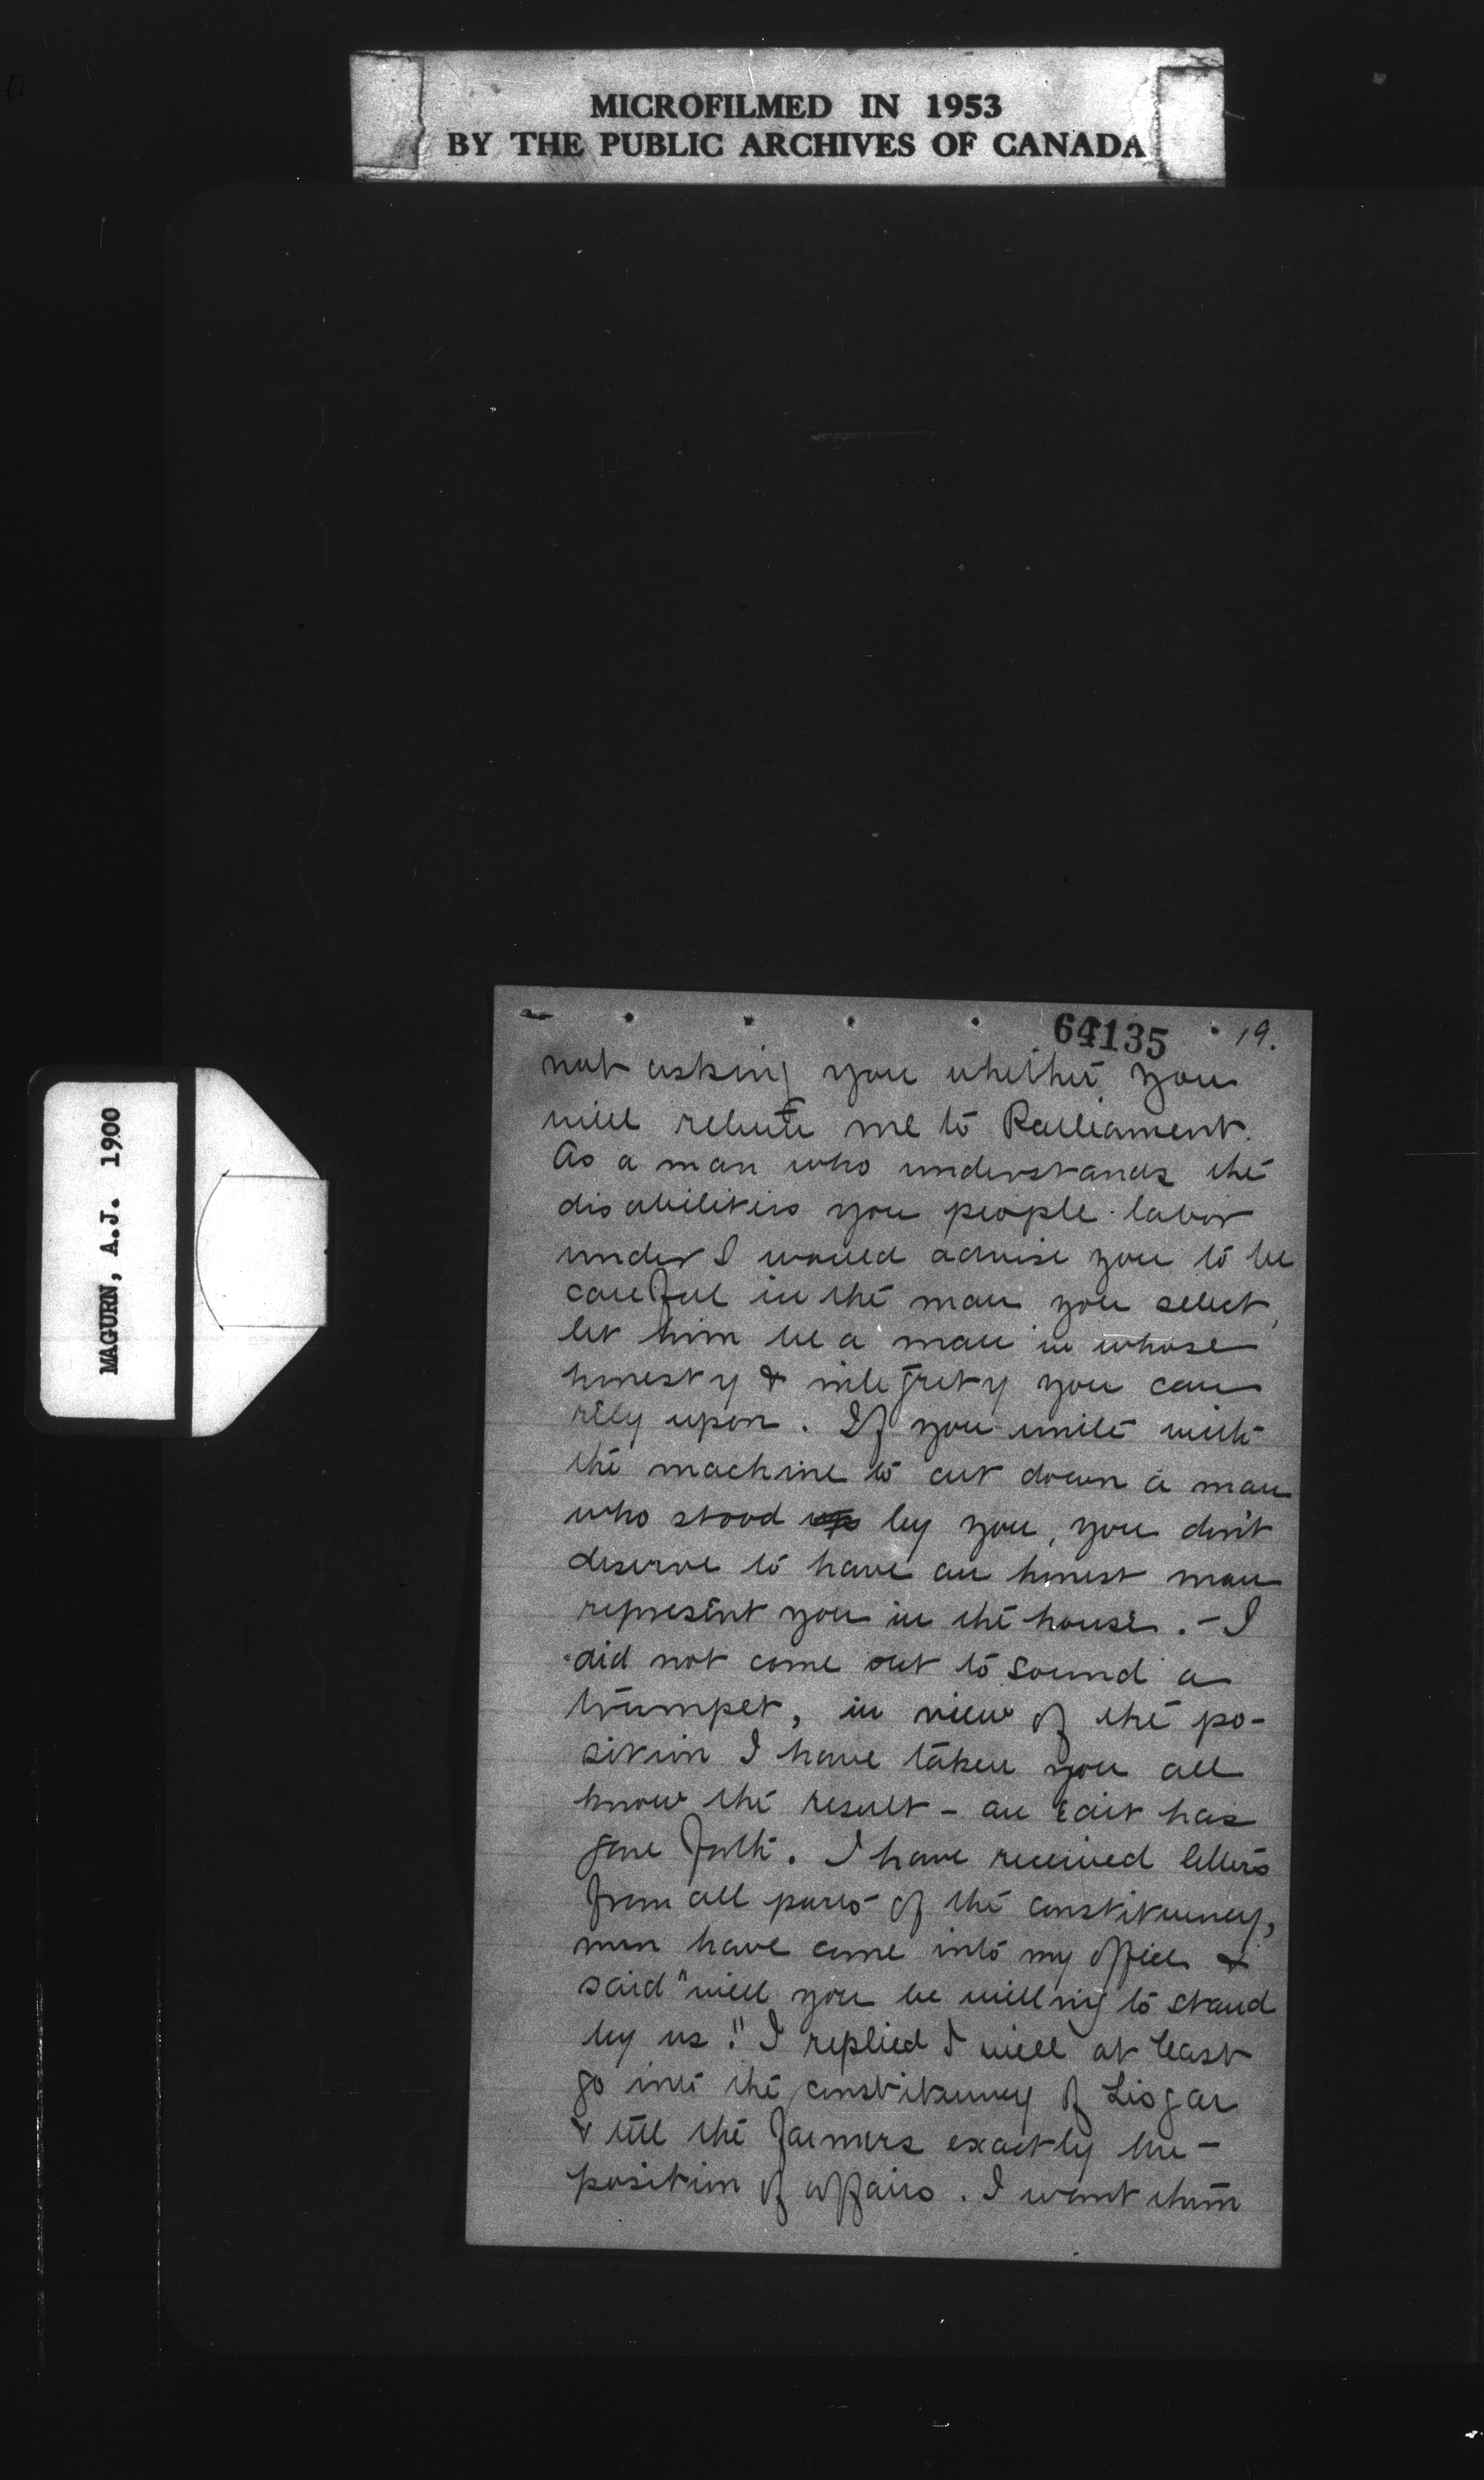 MICROFILMED IN 1953
BY THE PUBLIC ARCHIVES OF CANADA
MAGURN, A.J. 1900
64135 19.
not asking you whether you
will return me to Parliament.
As a man who understands the
disabilities you people labor
under I would advise you to be
careful in the man you select,
let him be a man in whose
honesty & integrity you can
rely upon. If you unite with
the machine to cut down a man
who stood up by you, you don't
deserve to have an honest man
represent you in the house. - I
did not come out to sound a
trumpet, in view of the po-
sition I have taken you all
know the result - an edict has
gone forth. I have received letters
from all parts of the constituency,
men have come into my office &
said "will you be willing to stand
by us." I replied I will at least
go into the constituency of Lisgar
& tell the farmers exactly the
position of affairs. I want them